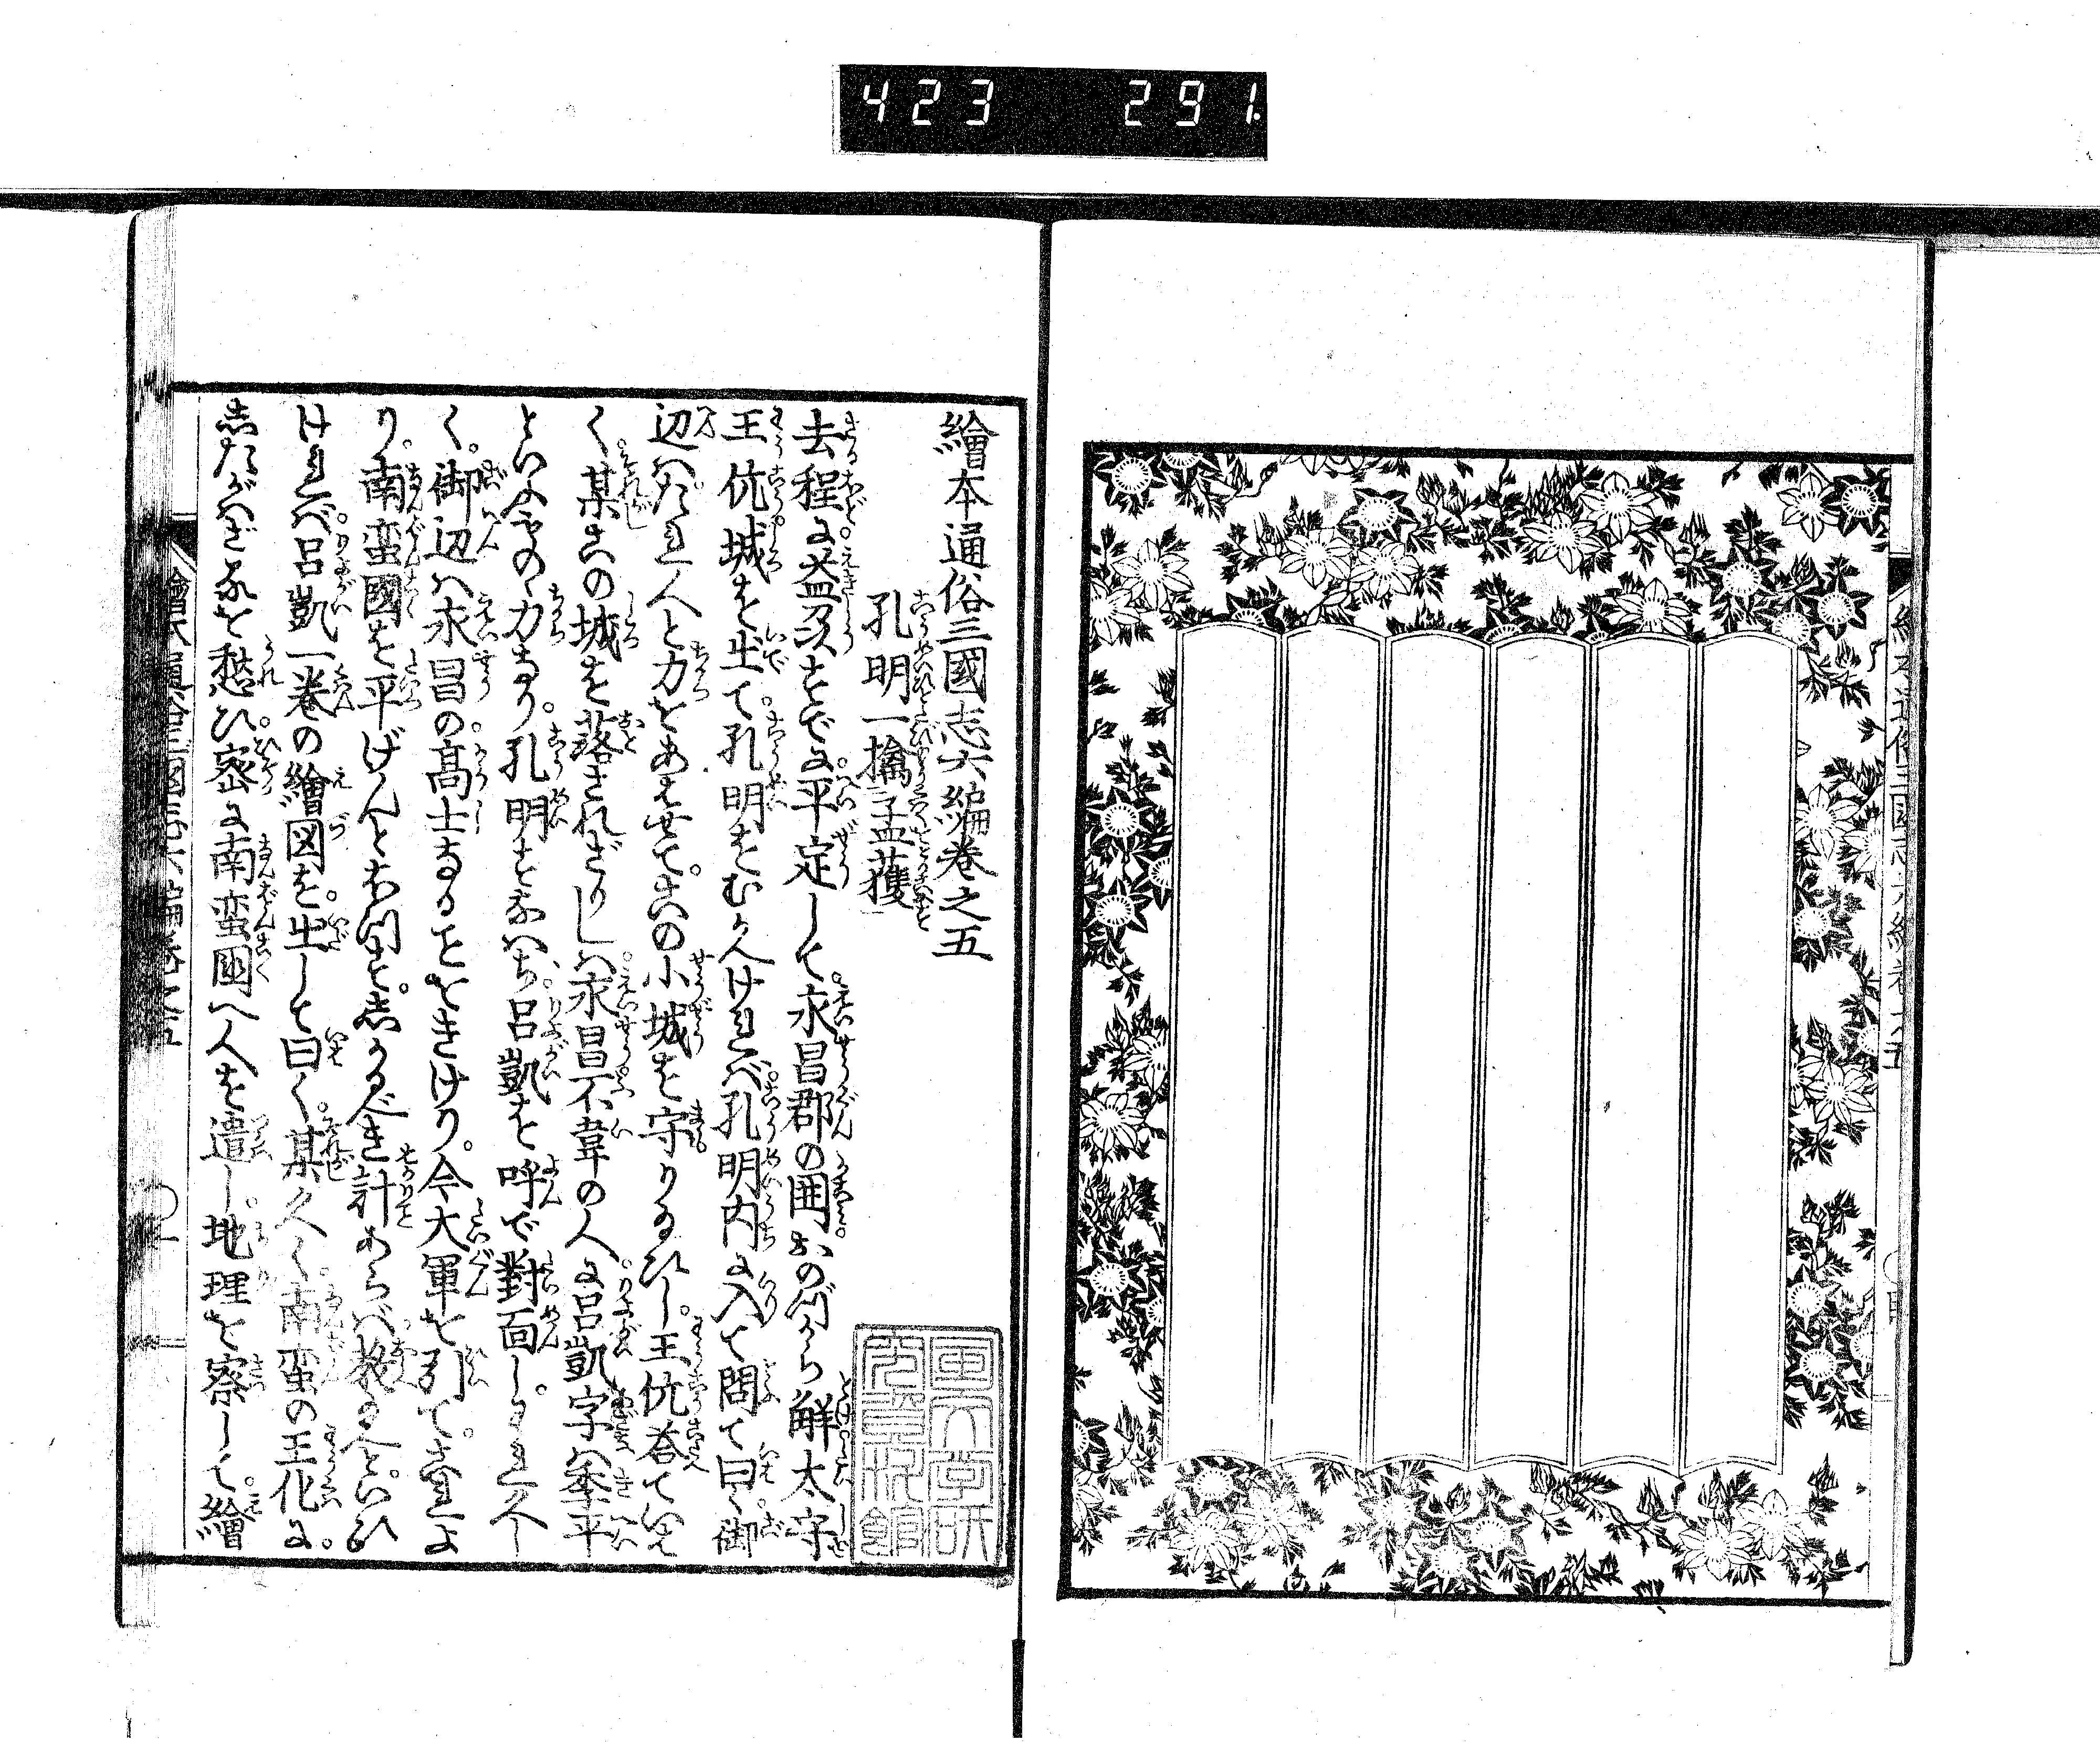 423 291
繪本通俗三國志六編巻之五
孔明一擒孟獲
去程に益州すでに平定して永昌郡の囲おのづから觧太守
王伉城を出て孔明をむかへければ孔明内に入て問て曰く御
辺はたれ人と力をあはせてこの小城を守りるひし王伉荅ていは
く某この城を落されざりしハ永昌不韋の人に呂凱字ハ季平
といふものゝ力なり孔明すなハち呂凱を呼で對面しわれ久し
く御辺ハ永昌の髙士なることをきけり今大軍を引てこれよ
り南蛮國を平げんとおもふをしかるべき計あらバ教るへといひ
ければ呂凱一巻の繪図を出して曰く某久しく南蛮の王化に
したがハざるを愁ひ密に南蛮國へ人を遣し地理を察して繪